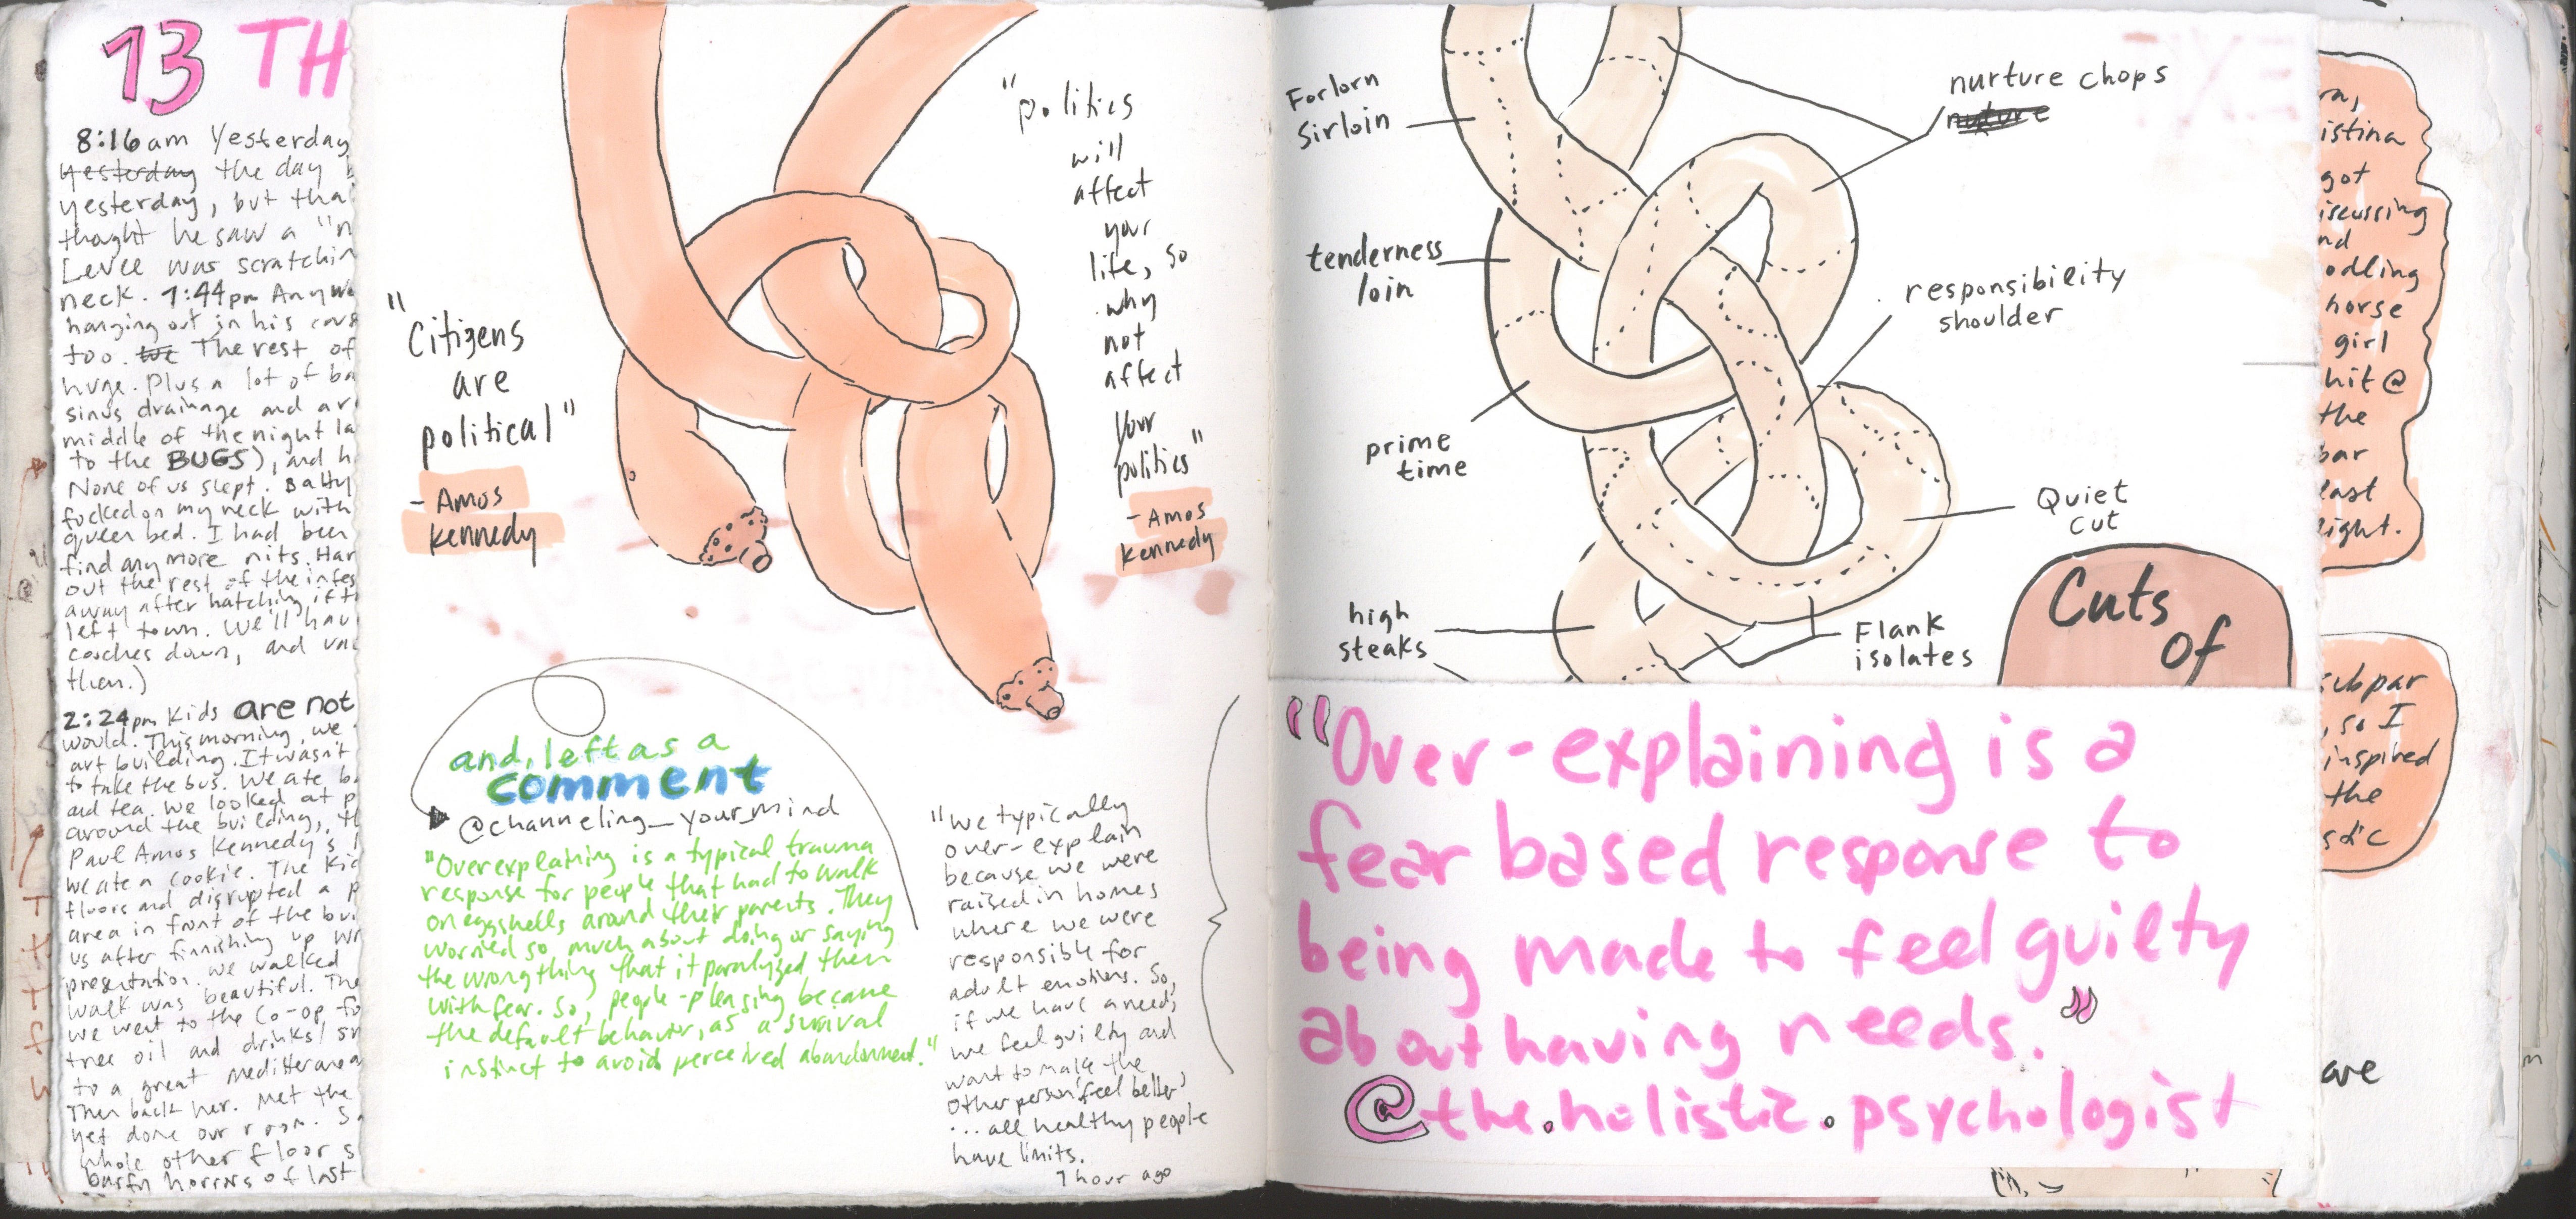 13 TH
8:16am Yesterday
yesterday the day b
yesterday, but tha
thaght he saw a "n
Levee was scratchin
neck. 7:44pm Anywa
hanging out in his cars
too. We The rest of
huge. Plus a lot of ba
sinus drainage and ar
middle of the night la
to the BUGS), and h
None of us slept.
focked on my neck with
queen bed. I had been
find any more nits. Har
out the rest of the infes
away after hatching if th
left town. We'll hav
couches down, and vac
then.)
2:24pm Kids are not
would. This morning, we
art building. It wasn't
to take the bus. We ate b
and tea. We looked at p
around the building, th
Paul Amos Kennedy's
We ate a cookie. The Kid
floors and disrupted a p
area in front of the bui
us after finnishing up wr
presentation. We walked
walk was beautiful. The
we went to the Co-op fo
tree oil and drinks/ sn
to a great Mediterranea
Then back her. Met the
yet done our room. S
whole other floor s
barfy horrors of last
"Citizens
are
political"
- Amos
Kennedy
"politics
will
affect
your
life, so
why
not
affect
your
politics"
- Amos
Kennedy
and, left as a
comment
@channeling_your_mind
"Overexplaining is a typical trauma
response for people that had to walk
on eggshells around their parents. They
worried so much about doing or saying
the wrong thing that it paralyzed them
with fear. So, people-pleasing became
the default behavior, as a survival
instinct to avoid perceived abandonment."
"We typically
over-explain
because we were
raised in homes
where we were
responsible for
adult emotions. So,
if we have a need,
we feel guilty and
want to make the
other person 'feel better'
... all healthy people
have limits.
1 hour ago
Forlorn
Sirloin
nurture chops
nuture
tenderness
loin
responsibility
shoulder
prime
time
Quiet
cut
high
steaks
Flank
isolates
Cuts
of
"Over-explaining is a
fear based response to
being made to feel guilty
about having needs."
@the.holistic.psychologist
ra,
istina
got
iscussing
nd
odling
horse
girl
hit @
the
bar
last
light.
subpar
, so I
inspired
the
stic
are